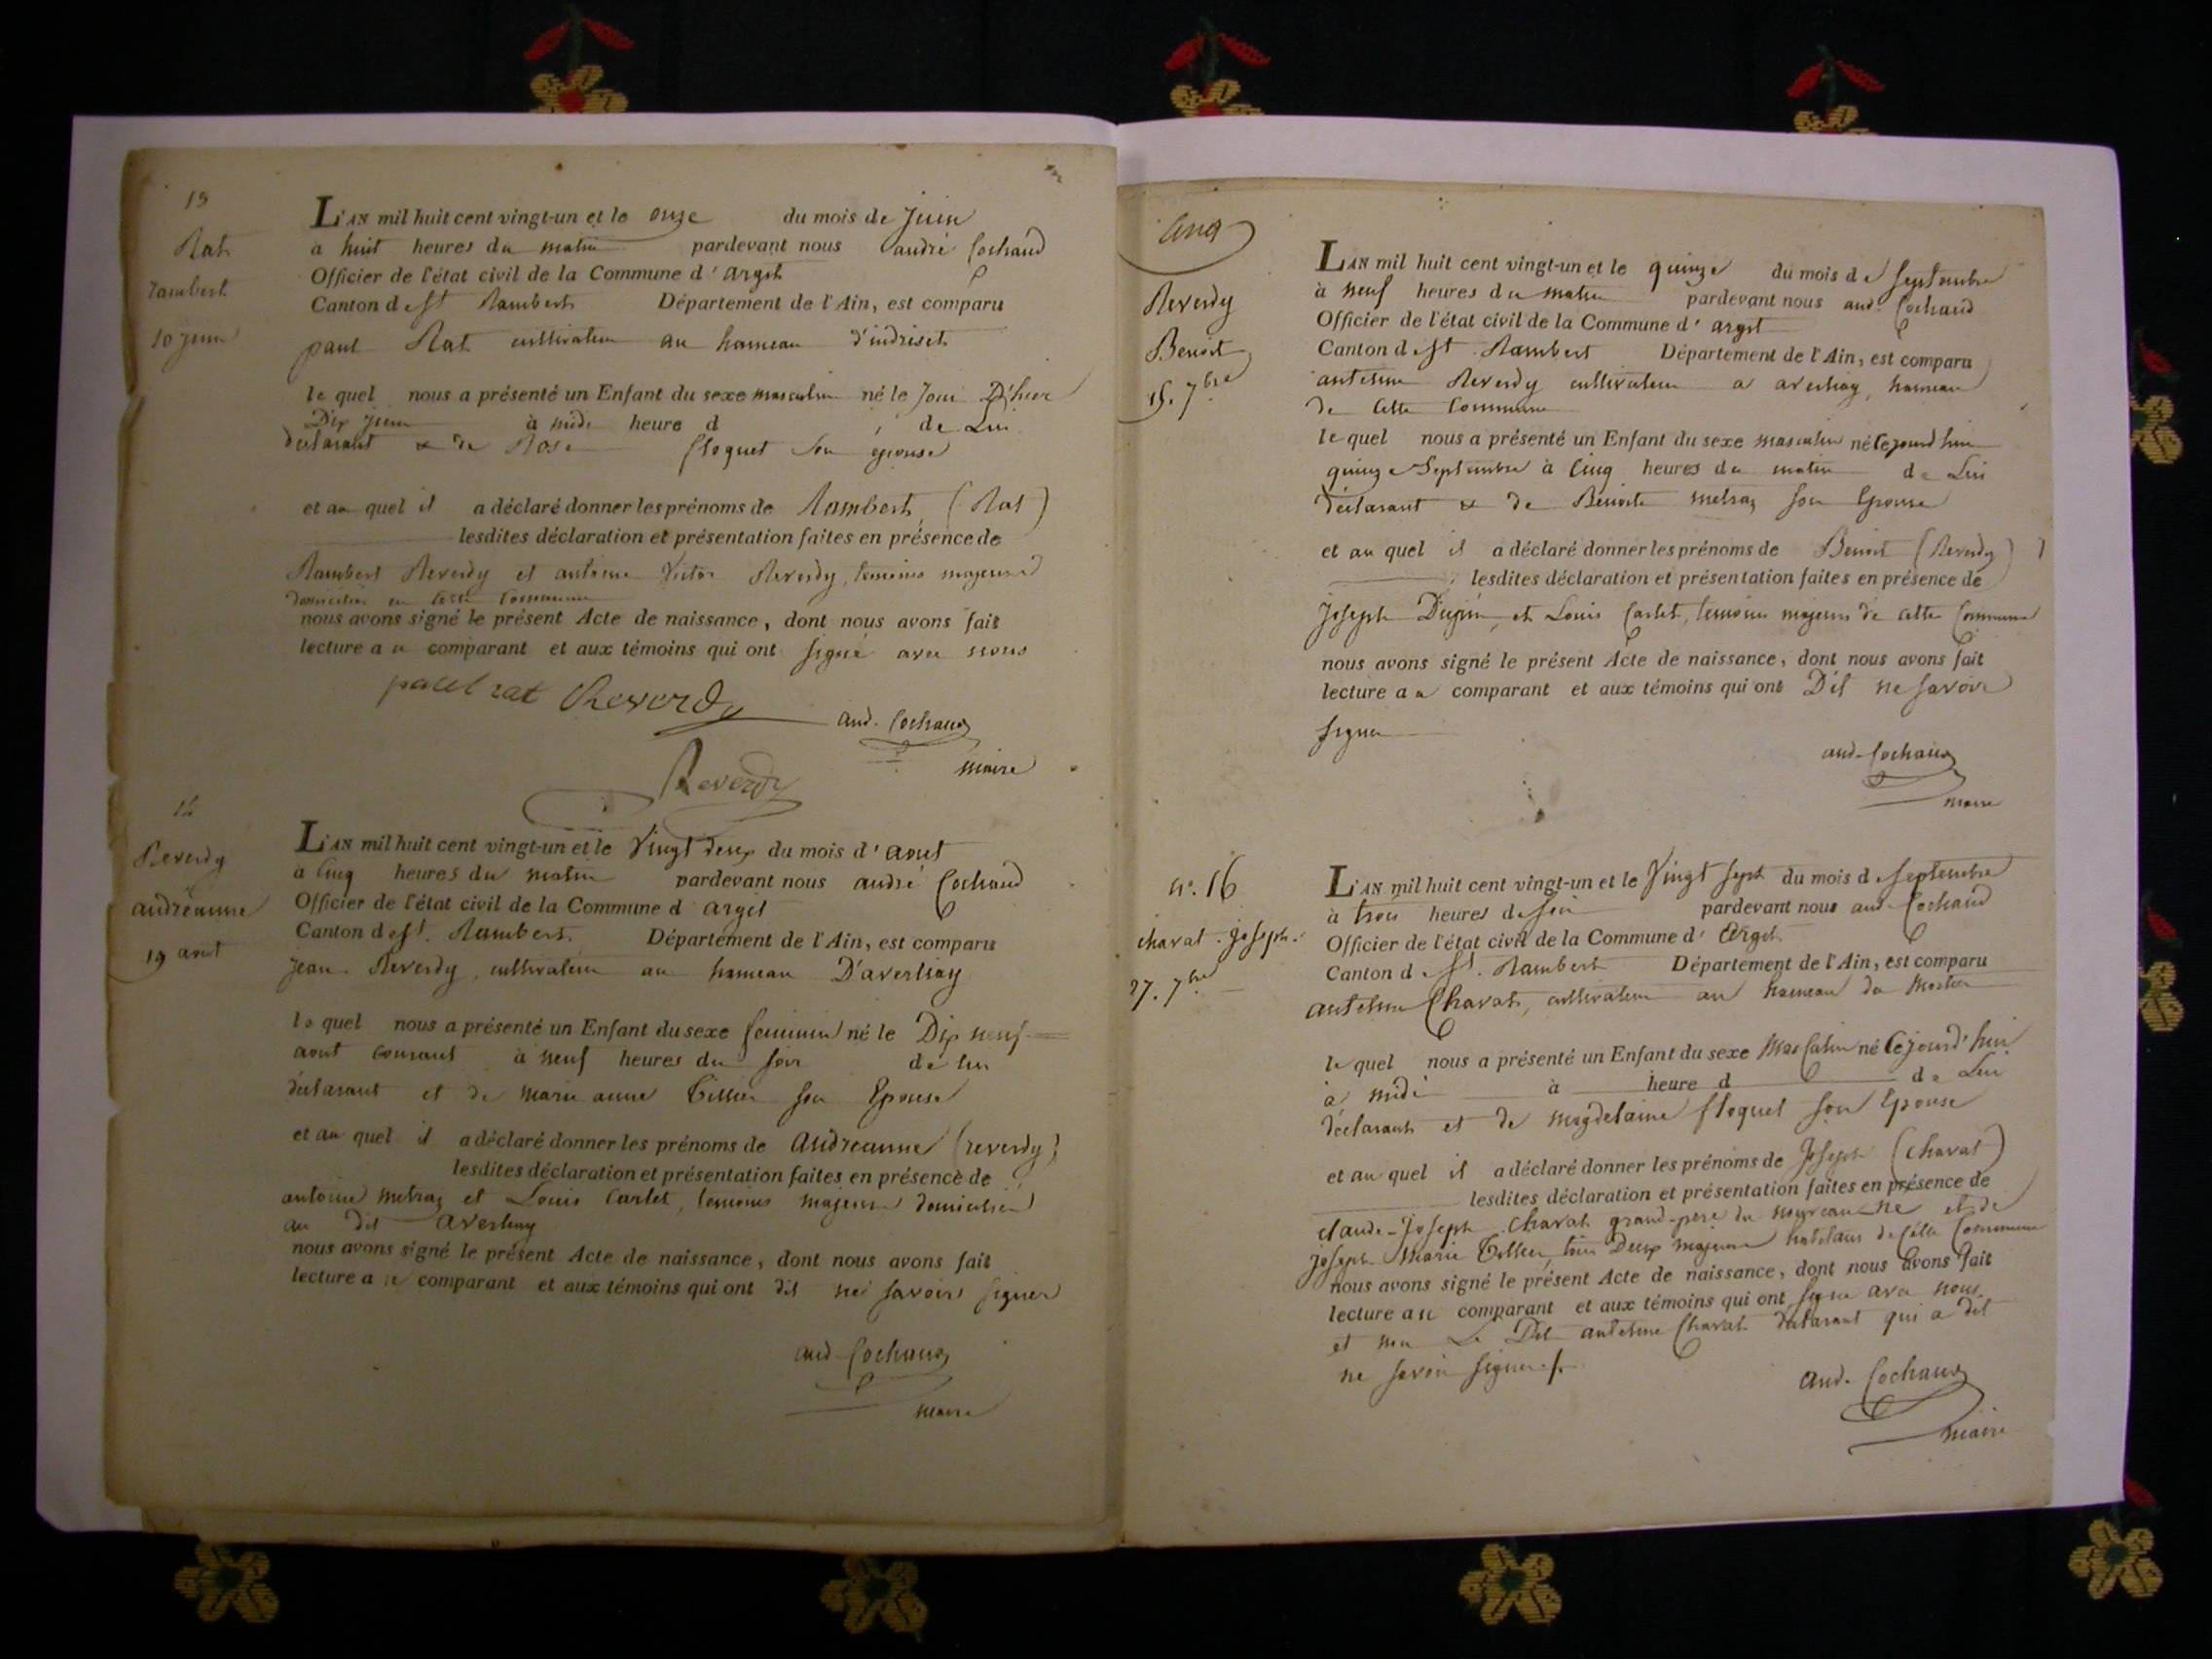 13
Rat
Rambert
10 juin
L'AN mil huit cent vingt-un et le onze du mois de Juin
a huit heures du matin pardevant nous andré Cochaud
Officier de l'état civil de la Commune d'argit
Canton de St Rambert Département de l'Ain, est comparu
paul Rat cultivateur au hameau d'indriset
le quel nous a présenté un Enfant du sexe masculin né le Jour D'hier
Dix juin à midi heure d de Lui
declarant & de Rose floquet son epouse
et au quel il a déclaré donner les prénoms de Rambert (Rat)
lesdites déclaration et présentation faites en présence de
Rambert Reverdy et antoine Victor Reverdy, temoins majeurs
domicilies en cette Commune
nous avons signé le présent Acte de naissance, dont nous avons fait
lecture au comparant et aux témoins qui ont signé avec nous
paul rat Reverdy and. Cochaud
maire
Reverdy
14
Reverdy
andréanne
19 aout
L'AN mil huit cent vingt-un et le Vingt deux du mois d'aout
a Cinq heures du matin pardevant nous andré Cochaud
Officier de l'état civil de la Commune d argit
Canton de St. Rambert. Département de l'Ain, est comparu
Jean Reverdy, cultivateur au hameau D'averliay
le quel nous a présenté un Enfant du sexe feminin né le Dix neuf
aout courant à neuf heures du soir de lui
déclarant et de marie anne Tillier son Epouse
et au quel il a déclaré donner les prénoms de andreanne (reverdy)
lesdites déclaration et présentation faites en présence de
antoine metraz et Louis Carlet, temoins majeurs domiciliés
au dit averliay
nous avons signé le présent Acte de naissance, dont nous avons fait
lecture au comparant et aux témoins qui ont dit ne savoir signer
and Cochaud
maire
Reverdy
Benoit
15. 7bre
LAN mil huit cent vingt-un et le quinze du mois de Septembre
à neuf heures du matin pardevant nous and. Cochaud
Officier de l'état civil de la Commune d'argit
Canton de St Rambert Département de l'Ain, est comparu
antelme Reverdy cultivateur a averliay, hameau
de Cette Commune
le quel nous a présenté un Enfant du sexe masculin né Cejourd'hui
quinze Septembre à Cinq heures du matin de Lui
déclarant & de Benoite metraz son Epouse
et au quel il a déclaré donner les prénoms de Benoit (Reverdy)
lesdites déclaration et présentation faites en présence de
Joseph et Louis Carlet, temoins majeurs de Cette Commune
nous avons signé le présent Acte de naissance, dont nous avons fait
lecture au comparant et aux témoins qui ont Dit ne savoir
signer
and. Cochaud
maire
n°. 16
chavat. Joseph.
27. 7bre
L'AN mil huit cent vingt-un et le Vingt sept du mois de Septembre
à trois heures du soir pardevant nous and. Cochaud
Officier de l'état civil de la Commune d'Argit
Canton de St. Rambert Département de l'Ain, est comparu
antelme Chavat, cultivateur au hameau du
le quel nous a présenté un Enfant du sexe Masculin né Cejourd'hui
à midi à heure d de Lui
déclarant et de magdelaine floquet son Epouse
et au quel il a déclaré donner les prénoms de Joseph (Chavat)
lesdites déclaration et présentation faites en présence de
claude-Joseph Chavat grand-pere du nouveau-né et de
joseph Marie Tillier, tous Deux majeurs habitans de Cette Commune
nous avons signé le présent Acte de naissance, dont nous avons fait
lecture au comparant et aux témoins qui ont signé avec nous.
et non Le Dit antelme Chavat déclarant qui a dit
ne savoir signer
and. Cochaud
maire